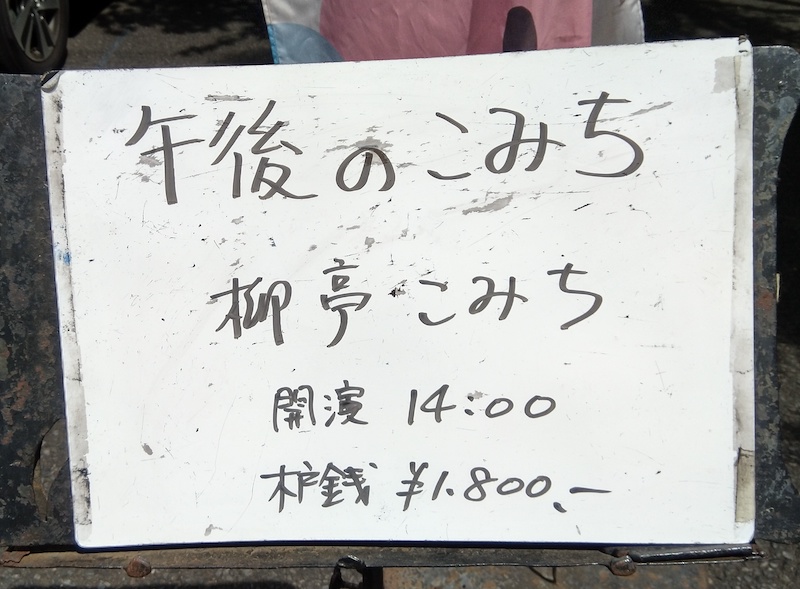 午後のこみち
柳亭こみち
開演 14:00
木戸銭 ¥1.800.-